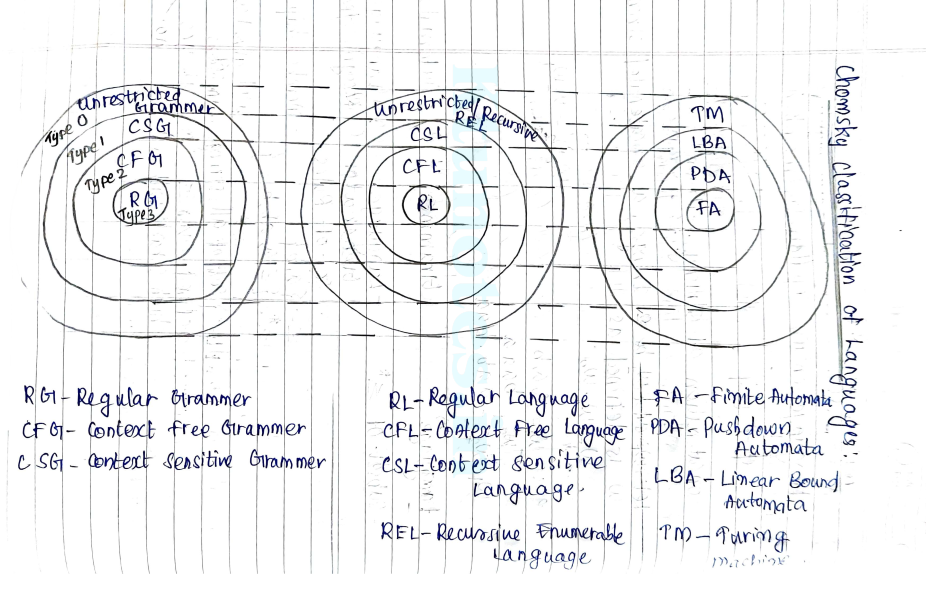 Chomsky Classification of Languages:
Unrestricted
Grammer
Type 0
CSG
Type 1
CFG
Type 2
RG
Type3
Unrestricted/Recursive
REL
CSL
CFL
RL
TM
LBA
PDA
FA
RG - Regular Grammer
CFG - Context free Grammer
CSG - Context Sensitive Grammer
RL - Regular Language
CFL - Context Free Language
CSL - Context Sensitive
Language.
REL - Recurssive Enumerable
Language
FA - Finite Automata
PDA - Pushdown
Automata
LBA - Linear Bound
Automata
TM - Turing
Machine